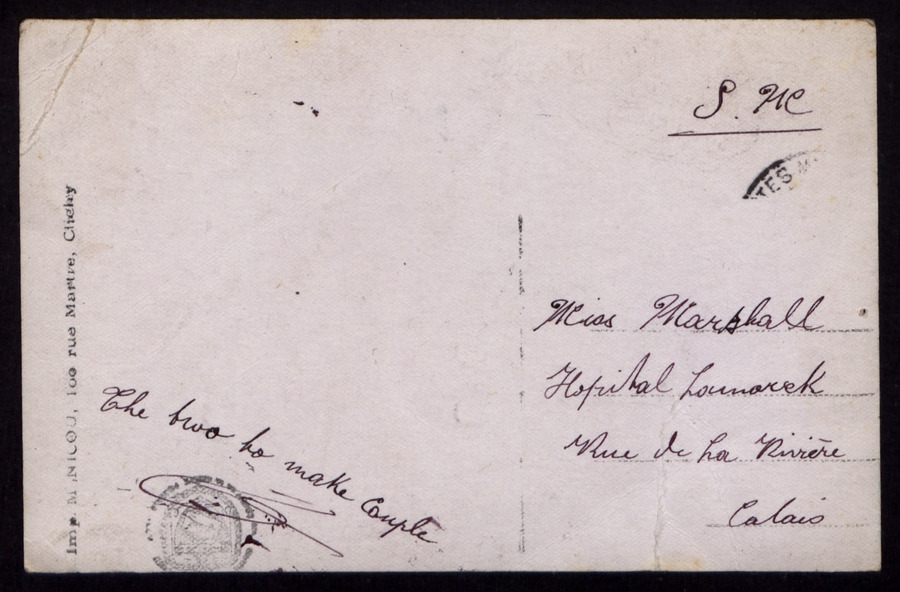 S. M
TES M
Imp. M. NICOD, 100 rue Martre, Clichy
Miss Marshall
Hopital Lamarck
Rue de La Rivière
Calais
The two to make Couple